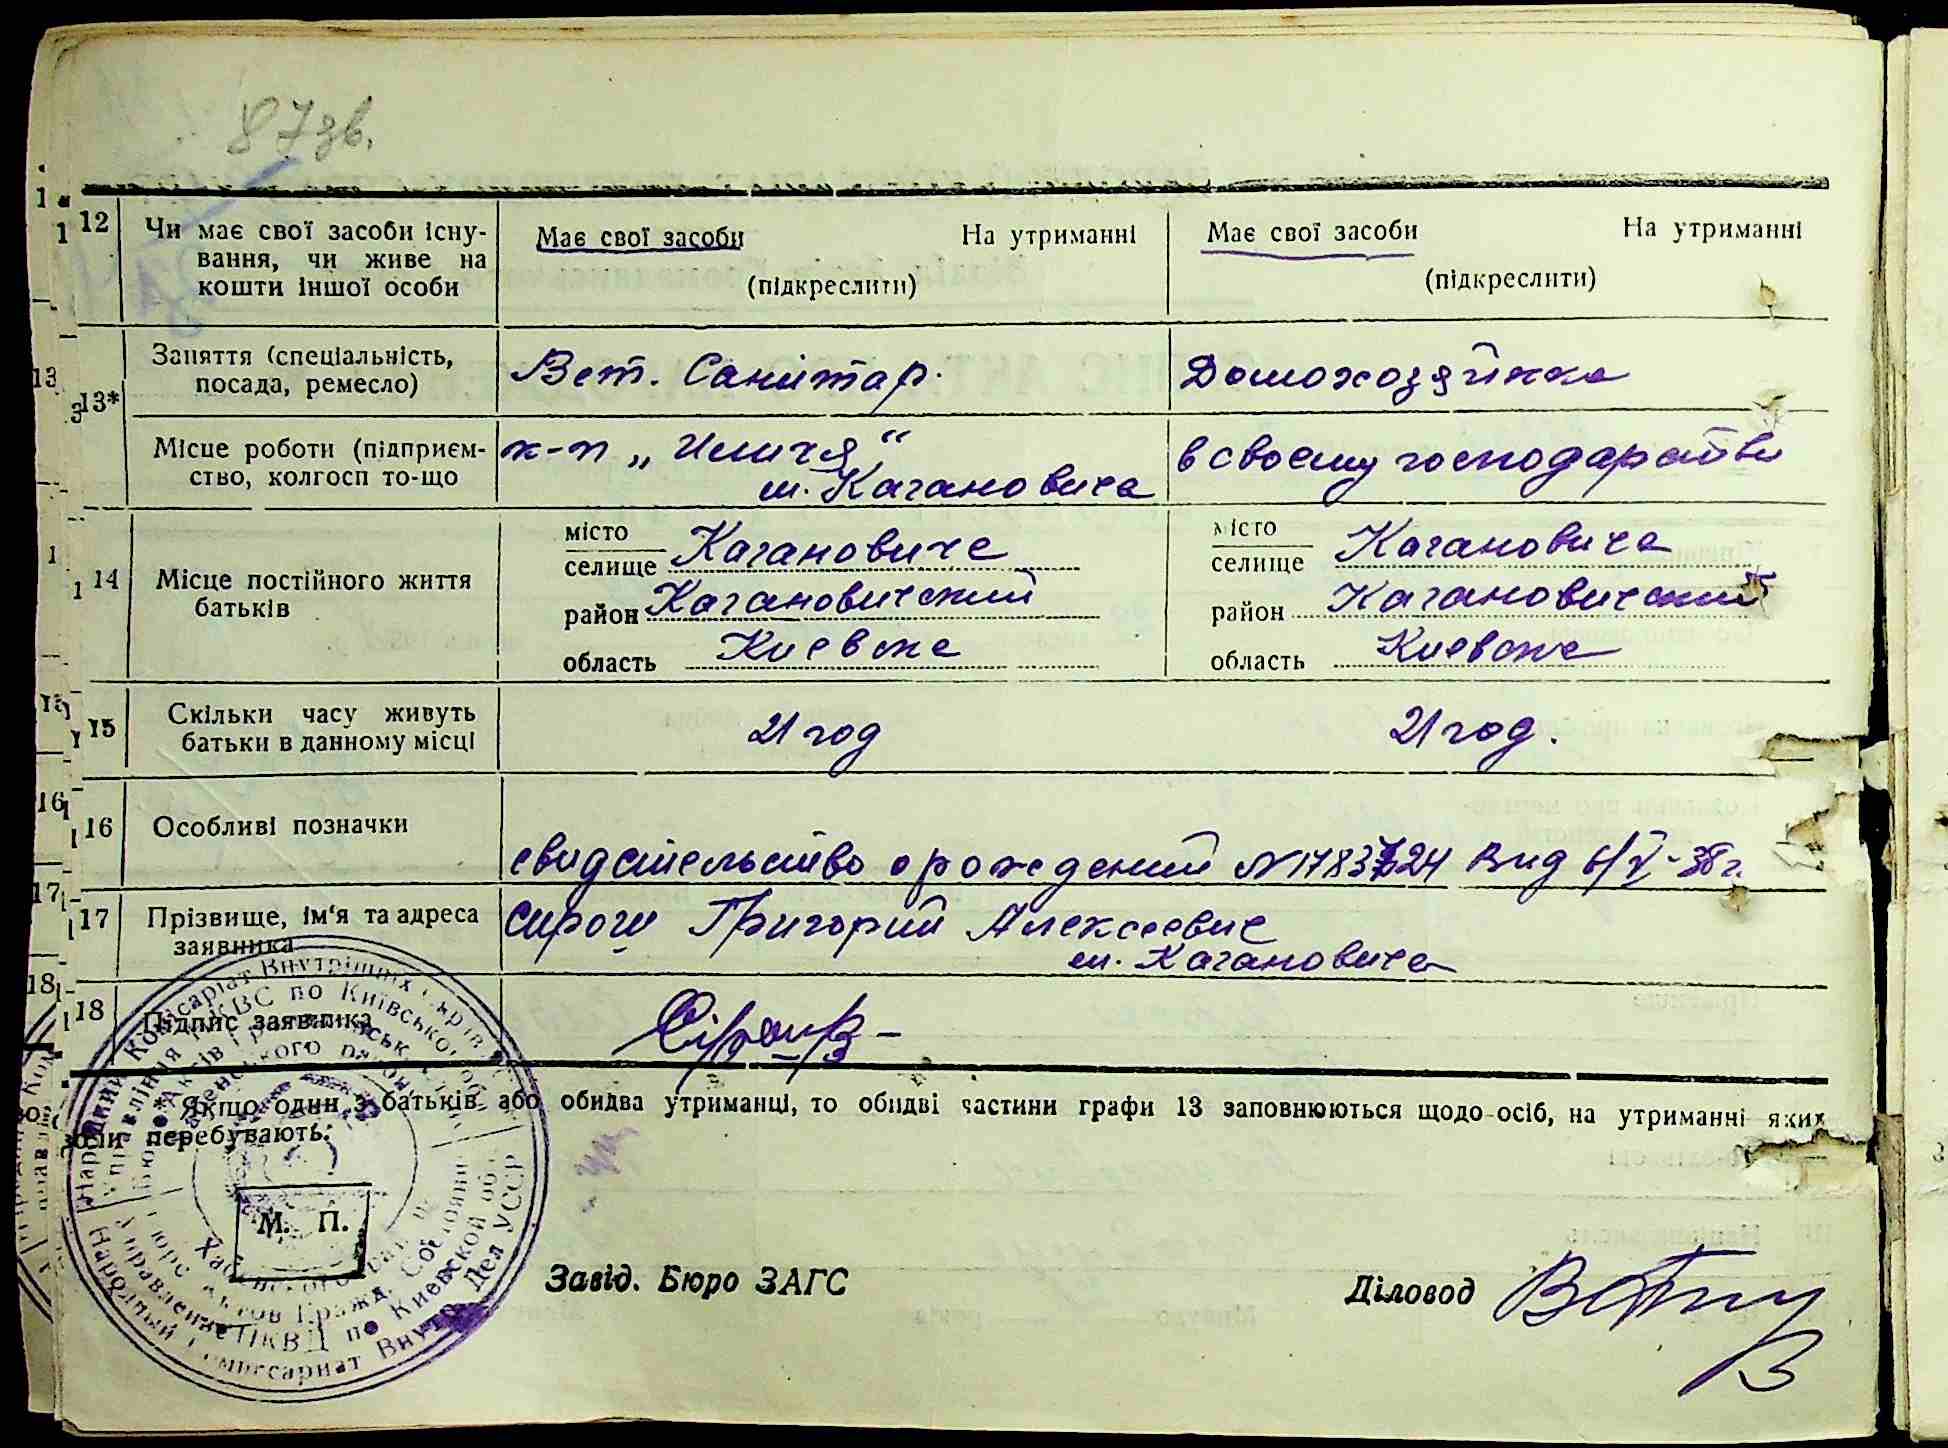 87зв.
12 Чи має свої засоби існу-
вання, чи живе на
кошти іншої особи
Має свої засоби На утриманні
(підкреслити)
Має свої засоби На утриманні
(підкреслити)
13*
Заняття (спеціальність,
посада, ремесло)
Вет. Санитар.
Домохозяйка
Місце роботи (підприєм-
ство, колгосп то-що
к-п „Илича“
м. Кагановича
в своему господарстви
14 Місце постійного життя
батьків
місто
селище Кагановиче
район Кагановичский
область Киевске
місто
селище Кагановича
район Кагановичский
область Киевске
15 Скільки часу живуть
батьки в данному місці
21 год
21 год.
16 Особливі позначки
свидетельство о рождений №
Вид 6/V-38г.
17 Прізвище, ім'я та адреса
заявника
Григорий Алексеевич
м. Кагановича
18 Підпис заявника
* Якщо один з батьків або обидва утриманці, то обидві частини графи 13 заповнюються щодо осіб, на утриманні яких
вони перебувають.
М. П.
Народний Комісаріат Внутрішніх
Управління НКВС по Київській
Народный Комиссариат Внутр. Дел УССР
Управление НКВД по Киевской обл
Завід. Бюро ЗАГС
Діловод